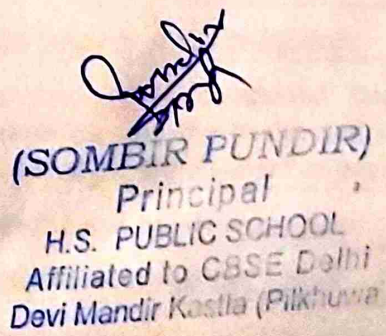 (SOMBIR PUNDIR)
Principal
H.S. PUBLIC SCHOOL
Affiliated to CBSE Delhi
Devi Mandir Kastla (Pilkhuwa